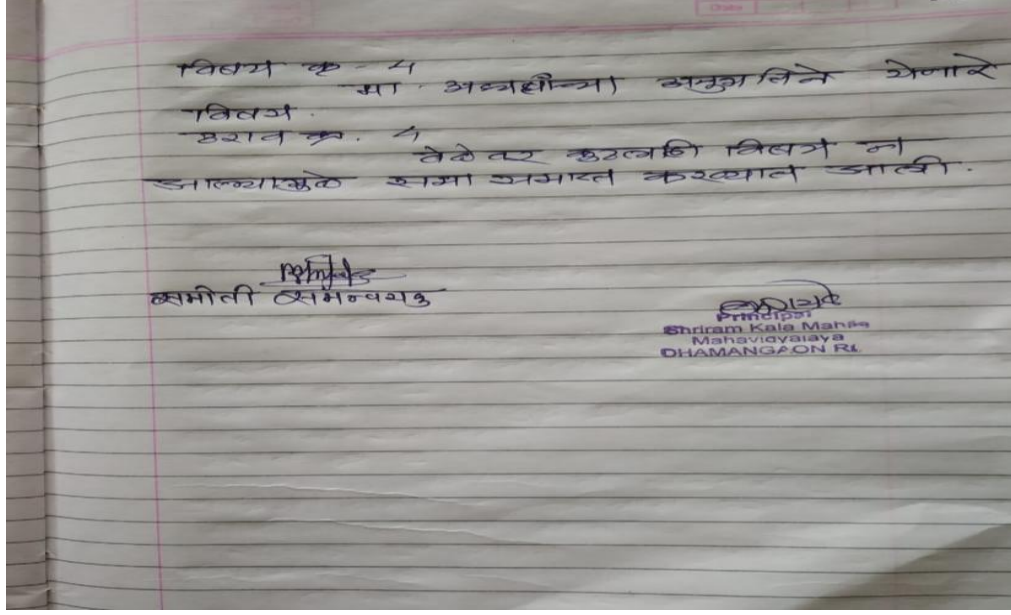 विषय क्र - 4
मा. अध्यक्षांच्या अनुमतिने येणारे
विषय.
ठराव क्र. 4
वेळेवर कुठलाही विषय न
आल्यामुळे सभा समाप्त करण्यात आली.
समीती समन्वयक
Principal
Shriram Kala Mahila
Mahavidyalaya
DHAMANGAON Rl